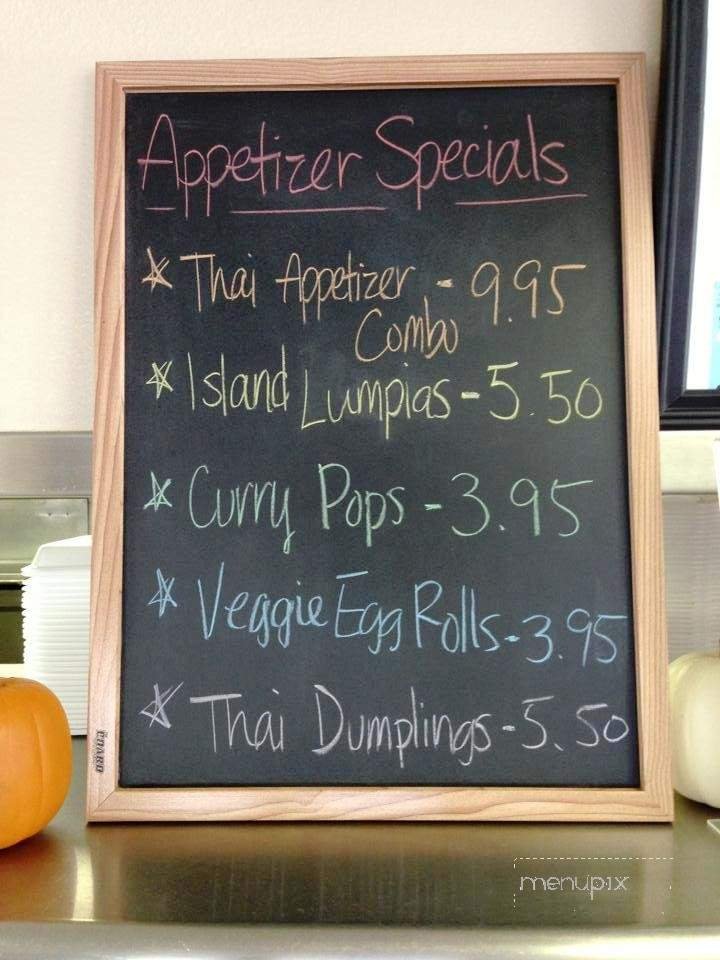 Appetizer Specials
☆ Thai Appetizer - 9.95
Combo
☆ Island Lumpias - 5.50
☆ Curry Pops - 3.95
☆ Veggie Egg Rolls - 3.95
☆ Thai Dumplings - 5.50
menupix